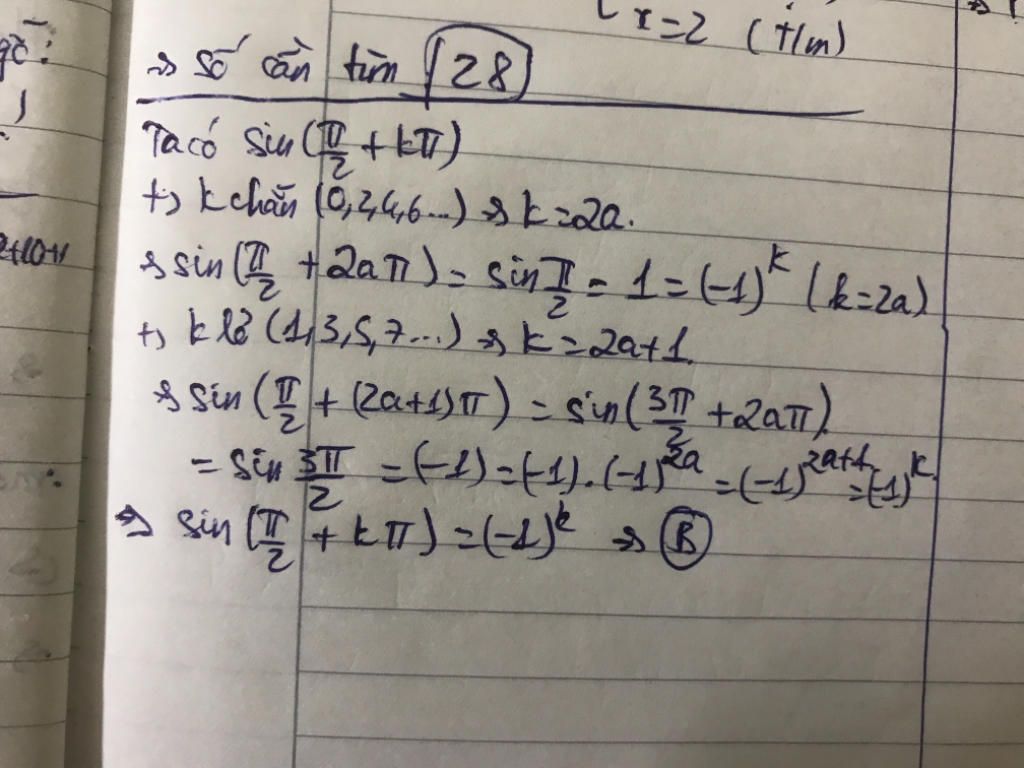 x=2 (t/m)
=> số cần tìm 28
Ta có sin(π/2 + kπ)
+, k chẵn (0,2,4,6...) => k=2a.
=> sin(π/2 + 2aπ) = sin π/2 = 1 = (-1)^k (k=2a)
+, k lẻ (1,3,5,7...) => k=2a+1.
=> sin(π/2 + (2a+1)π) = sin(3π/2 + 2aπ).
= sin 3π/2 = (-1) = (-1).(-1)^2a = (-1)^2a+1 = (-1)^k.
=> sin(π/2 + kπ) = (-1)^k => B